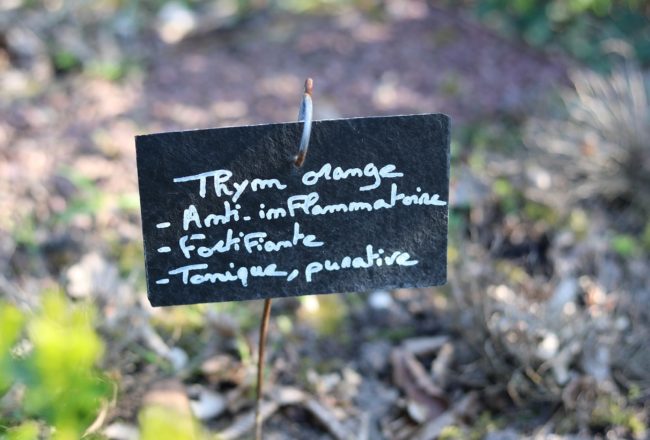 Thym orange
- Anti-inflammatoire
- Fortifiante
- Tonique, purative